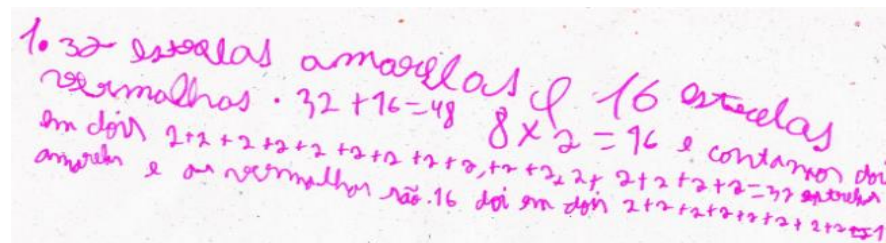 1. 32 estrelas amarelas e 16 estrelas
vermalhas. 32+16=48 8x2=16 e contamos doi
em dois 2+2+2+2+2+2+2+2+2+2+2+2+2+2+2+2=32 estrelas
amarelas e as vermalhas são. 16 doi em dois 2+2+2+2+2+2+2+2=1